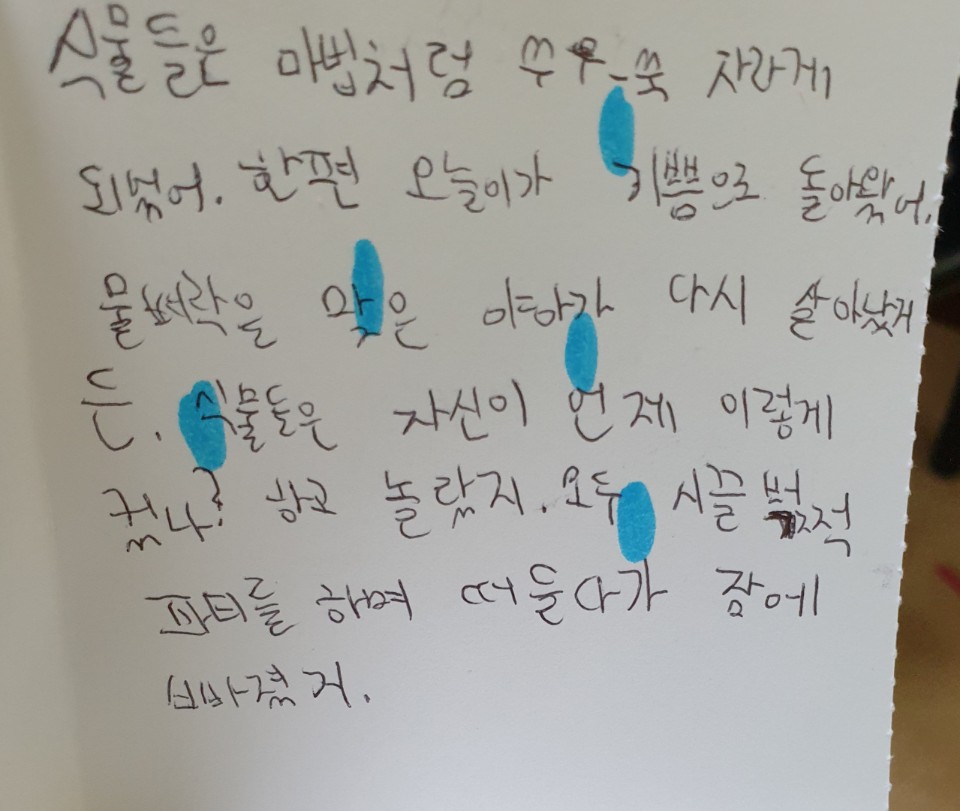 식물들은 마법처럼 쑤우-쑥 자라게
되었어. 한편 오늘이가 기쁨으로 돌아왔어.
물벼락을 맞은 야아가 다시 살아났거
든. 식물들은 자신이 언제 이렇게
컸나? 하고 놀랐지. 모두 시끌벅적
파티를 하며 떠들다가 잠에
빠졌거.